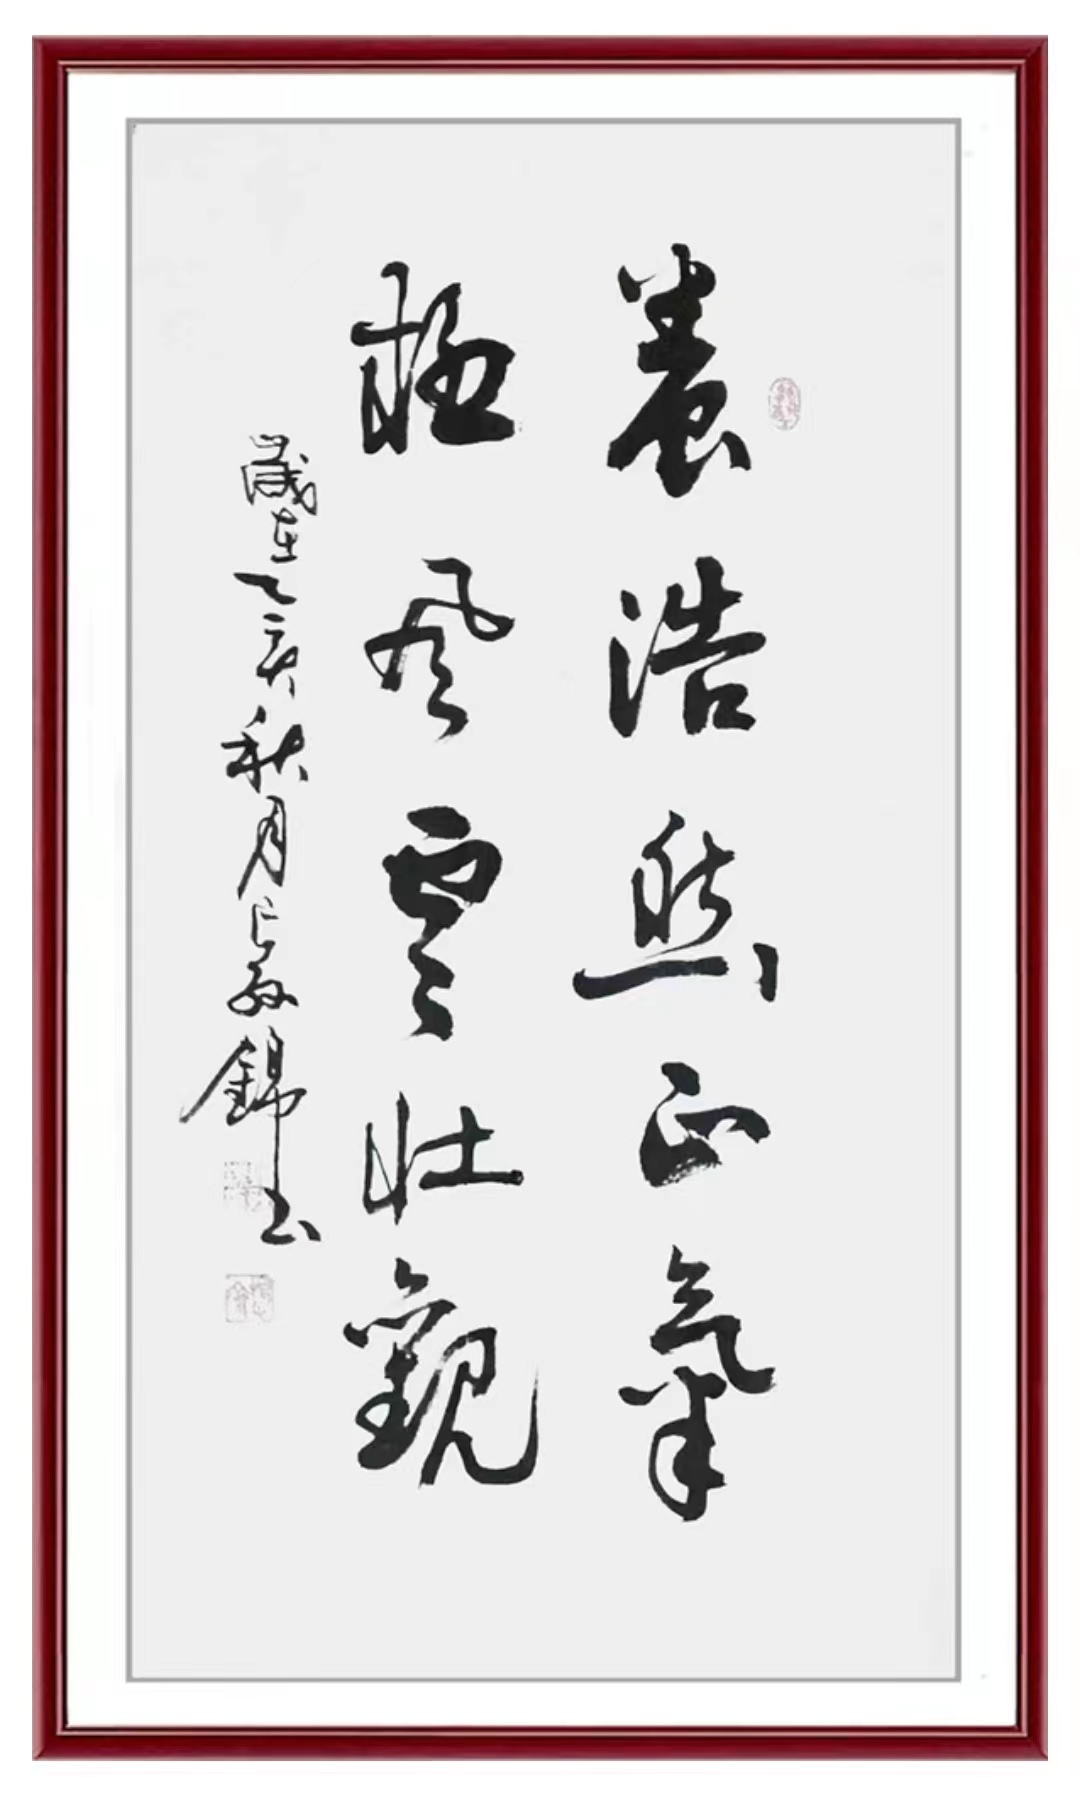 養浩然正氣
極風雲壯觀
歲在乙亥秋月 錦 书